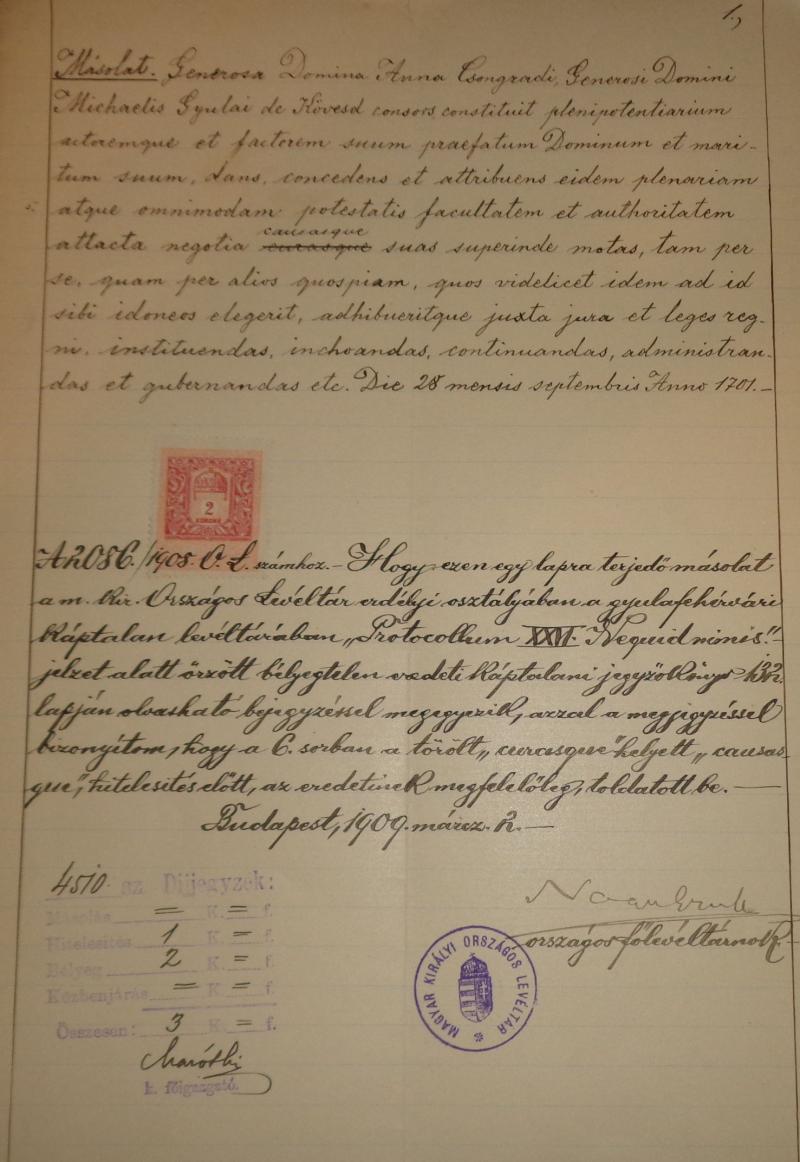 1.,
Másolat. Generosa Domina Anna Csongradi, Generosi Domini
Michaelis Gyulai de Kövesd consors constituit plenipotentiarium
actoremque et factorem suum praefatum Dominum et mari-
tum suum, dans, concedens et attribuens eidem plenariam
atque omnimodam potestatis facultatem et authoritatem
causasque
attacta negotia curasque suas superinde motas, tam per
se, quam per alios quospiam, quos videlicet idem ad id
sibi idoneos elegerit, adhibueritque juxta jura et leges reg-
ni, instituendas, inchoandas, continuandas, administran-
das et gubernandas etc. Die 28 mensis septembris Anno 1701.-
2
KORONA
A 2086./1908. O. L. számhoz.- Hogy ezen egy lapra terjedő másolat
a m. kir. Országos Levéltár erdélyi osztályában a gyulafehérvári
káptalan levéltárában "Protocollum XXVI. Nequid nimis"
jelzet alatt őrzött bélyegtelen eredeti káptalani jegyzőkönyv 132.
lapján olvasható bejegyzéssel megegyezik, azzal a megjegyzéssel
bizonyítom, hogy a 6. sorban a törölt "curasque" helyett "causas-
que", hitelesítés előtt, az eredetinek megfelelőleg, toldatott be.-
Budapest, 1909. március 2.-
4510 sz Díjjegyzék:
Másolás = K. = f.
Hitelesítés 1 K. = f.
Bélyeg 2 K. = f.
Közbenjárás = K. = f.
Összesen: 3 K. = f.
k. főigazgató.
országos főlevéltárnok
MAGYAR KIRÁLYI ORSZÁGOS LEVÉLTÁR